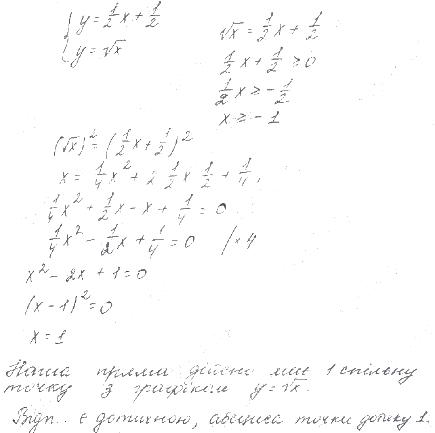 { y = 1/2 x + 1/2
y = √x
√x = 1/2 x + 1/2
1/2 x + 1/2 ≥ 0
1/2 x ≥ - 1/2
x ≥ - 1
(√x)² = (1/2 x + 1/2)²
x = 1/4 x² + 2 1/2 x 1/2 + 1/4,
1/4 x² + 1/2 x - x + 1/4 = 0
1/4 x² - 1/2 x + 1/4 = 0 /× 4
x² - 2x + 1 = 0
(x - 1)² = 0
x = 1
Наша пряма дійсно має 1 спільну
точку з графіком y = √x.
Відп. є дотичною, абсциса точки дотику 1.